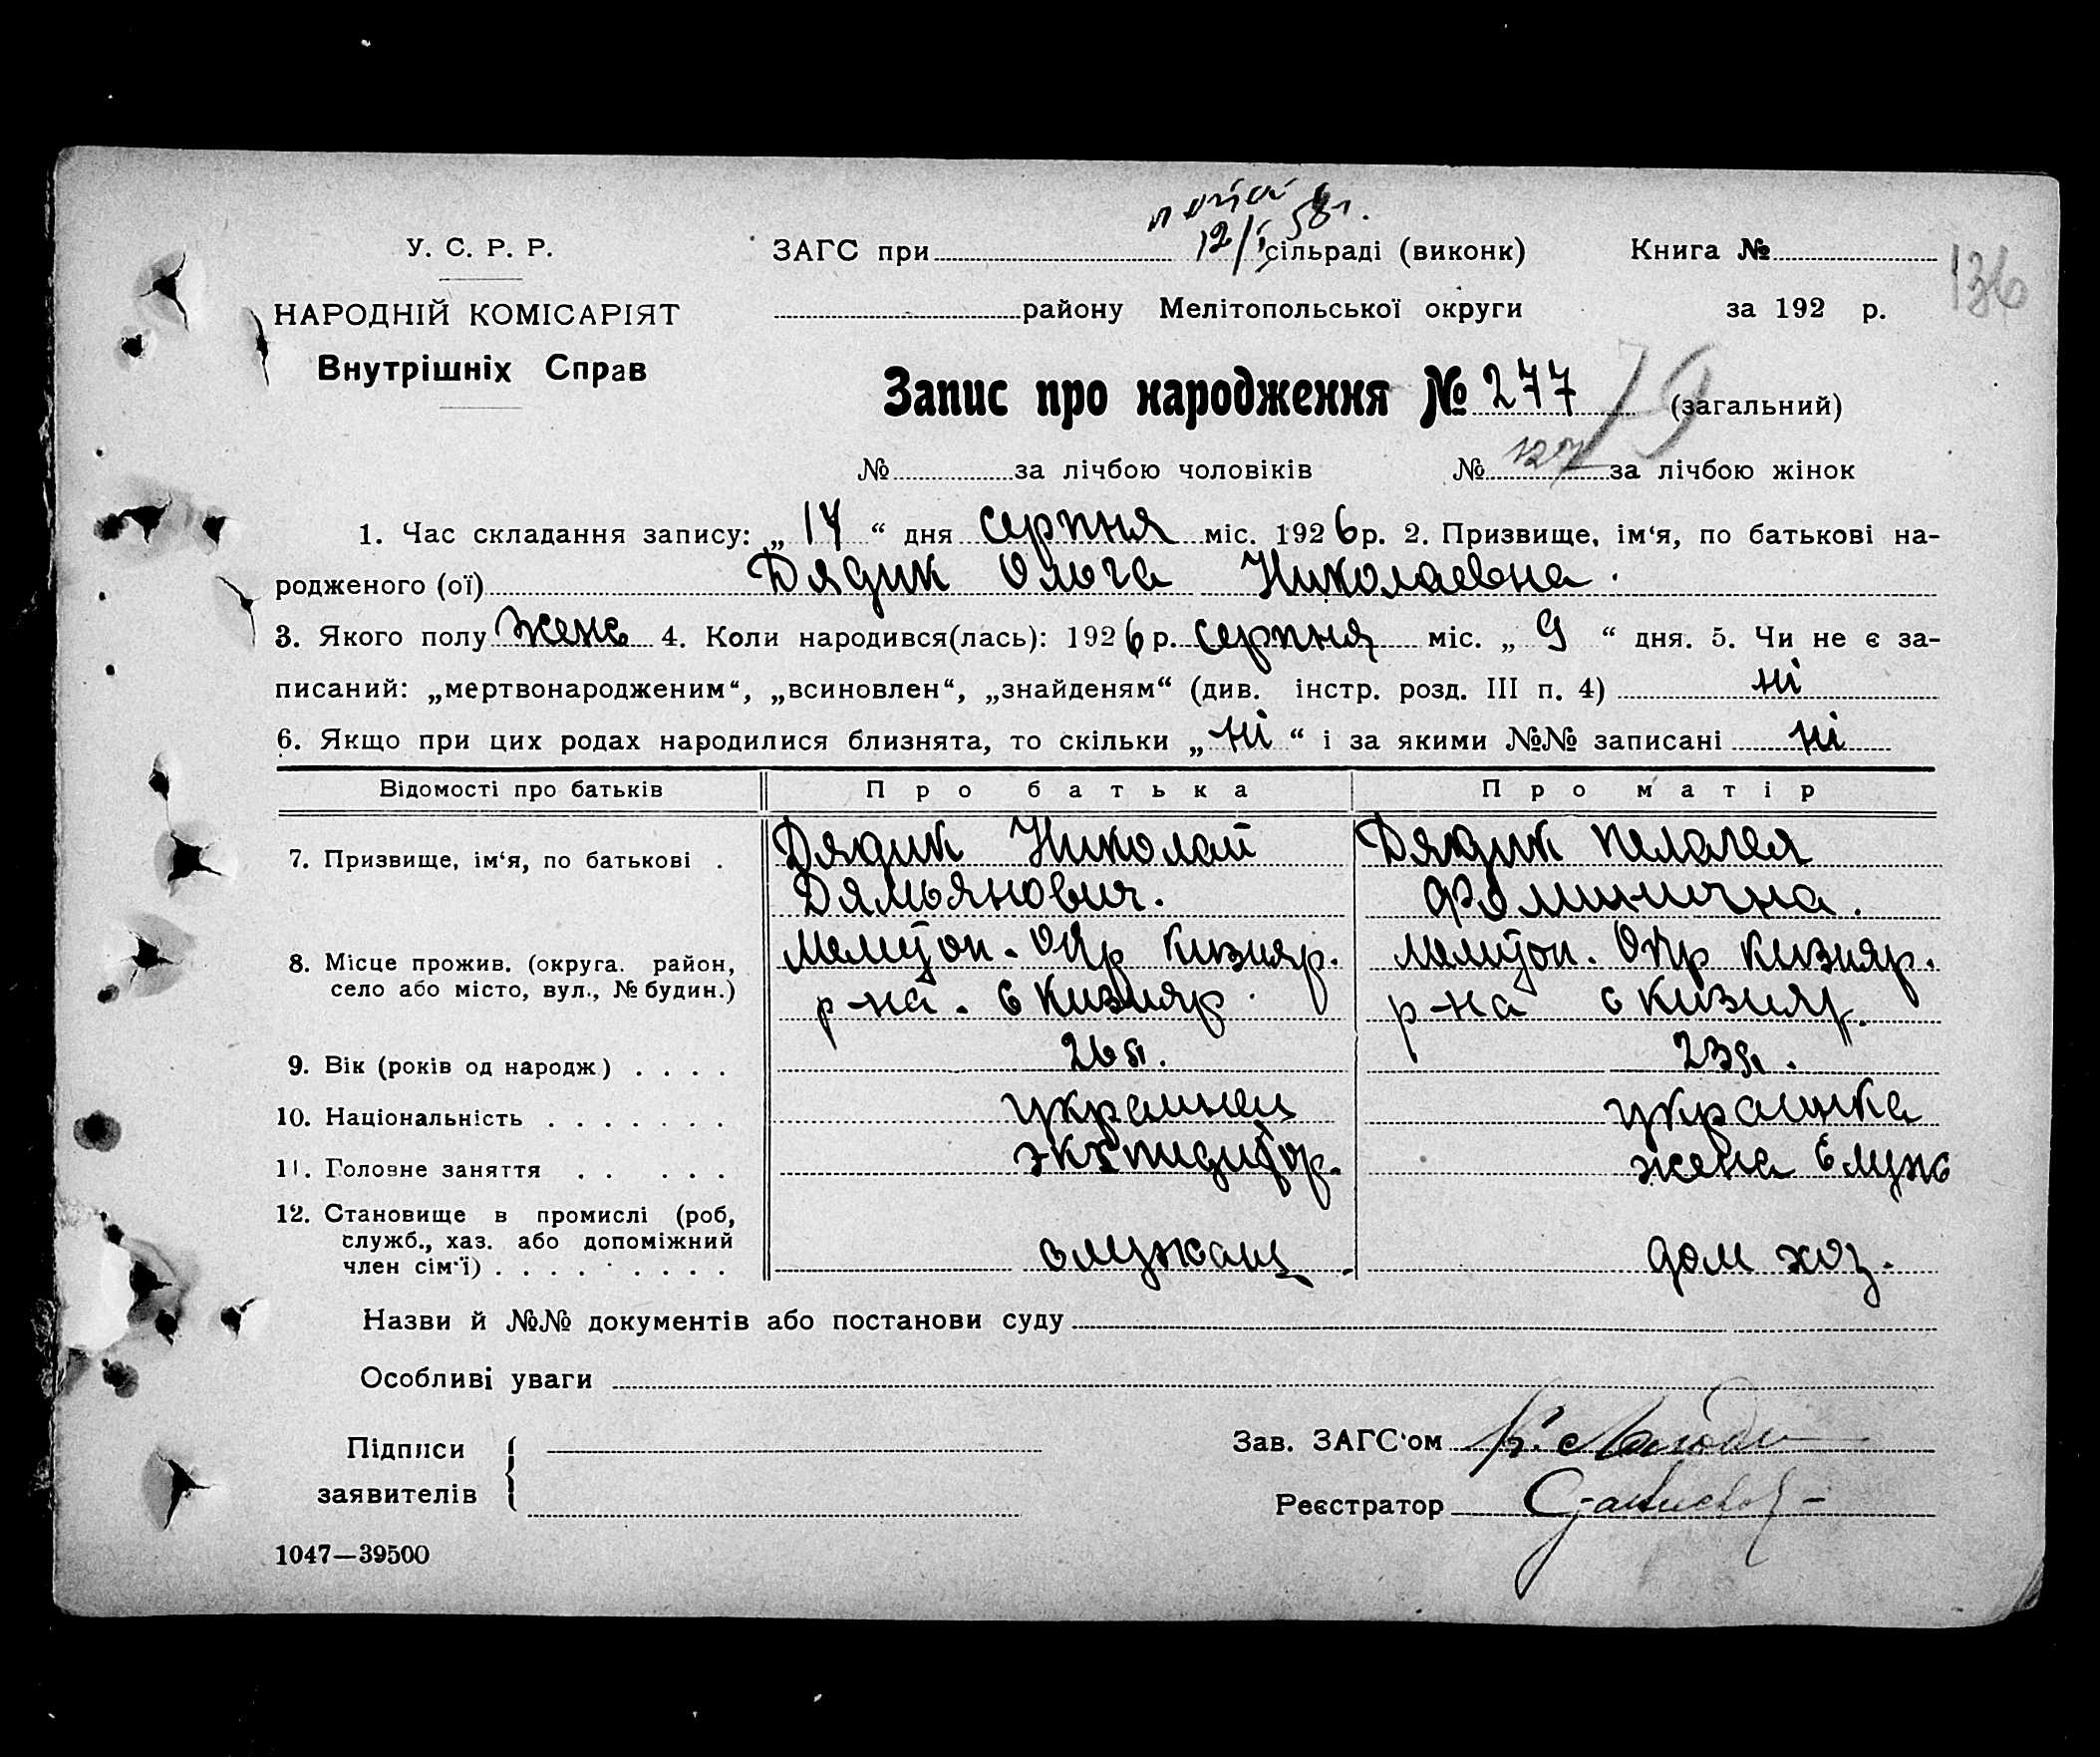 12/I 58г.
У. С. Р. Р. ЗАГС при сільраді (виконк) Книга №
136
НАРОДНІЙ КОМІСАРІЯТ району Мелітопольської округи за 192 р.
Внутрішніх Справ
Запис про народження № 277 (загальний)
79
№ за лічбою чоловіків № 127 за лічбою жінок
1. Час складання запису: „ 17 “ дня серпня міс. 1926 р. 2. Призвище, ім‘я, по батькові на-
родженого (ої) Дядик Ольга Николаевна.
3. Якого полу женс 4. Коли народився(лась): 1926 р. серпня міс. „ 9 “ дня. 5. Чи не є за-
писаний: „мертвонародженим“, „всиновлен“, „знайденям“ (див. інстр. розд. III п. 4) ні
6. Якщо при цих родах народилися близнята, то скільки „ ні “ і за якими №№ записані ні
Відомості про батьків Про батька Про матір
7. Призвище, ім‘я, по батькові . Дядик Николай Дядик Пелагея
Дямьянович. Фоминична.
8. Місце прожив. (округа. район, Мелитоп. Окр Кизияр. Мелитоп. Окр Кизияр.
село або місто, вул., № будин.) р-на. с Кизияр. р-на с Кизияр.
9. Вік (років од народж) . . . . 26 л. 23 л.
10. Національність . . . . . . . украинец украинка
11. Головне заняття . . . . . экспидитор. жена служ
12. Становище в промислі (роб,
служб., хаз. або допоміжний служащ дом хоз.
член сім‘ї) . . . . . . . . .
Назви й №№ документів або постанови суду
Особливі уваги
Підписи Зав. ЗАГС‘ом
заявителів Реєстратор
1047—39500